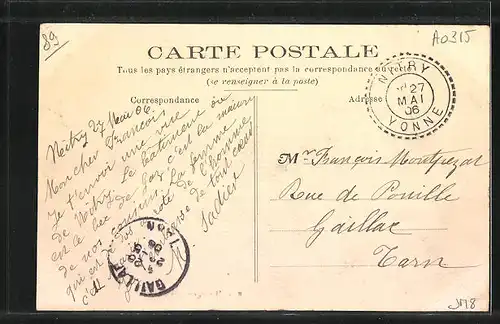 89
A0315
CARTE POSTALE
Tous les pays étrangers n'acceptent pas la correspondance au verso
(se renseigner à la poste)
Correspondance
Adresse
NITRY
27
MAI
06
YONNE
Nitry 27 Mai 06.
Mon cher François
Je t'envoie une vue
de Nitry. Le bâtiment où
est le bec de gaz c'est la maison
de nos cousins. La femme
qui est à côté de l'homme
c'est
de tout cœur
Mr François Montpezat
Rue de Pouille
Gaillac
Tarn
GAILLAC
TARN
JM8